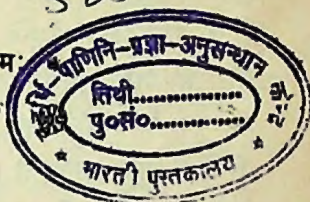 म:
र्षि-पाणिनि-प्रज्ञा-अनुसन्धान
तिथी.................
पु०सं०.................
* भारती पुस्तकालय *